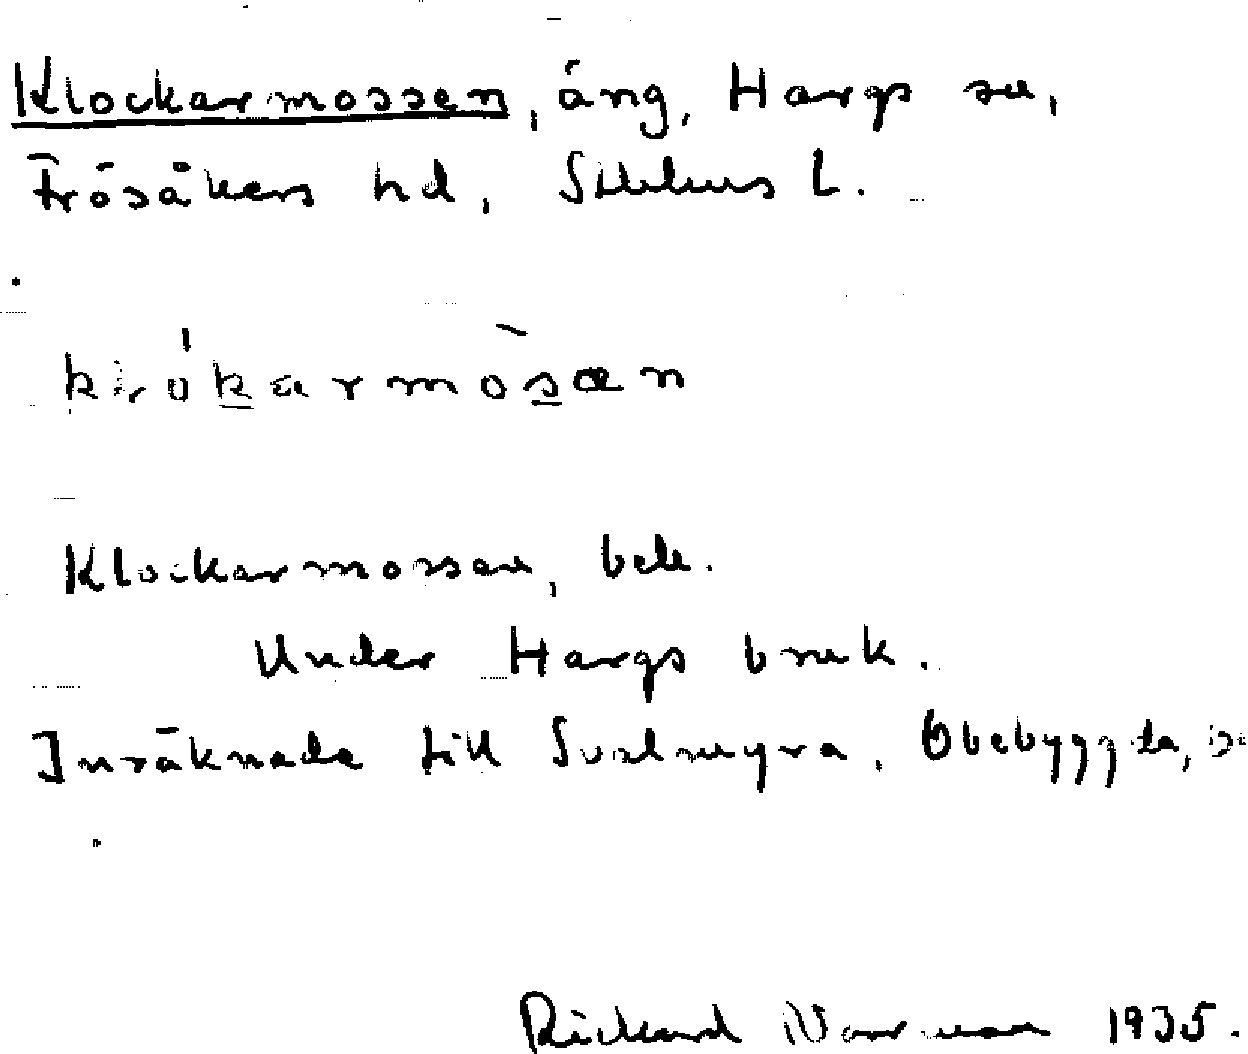 Klockarmossen, äng, Hargs sn,
Frösåkers hd, Sthlms L.
klókarmòsæn
Klockarmossen, bek.
Under Hargs bruk.
Inräknade till Svalmyra. Obebyggda,
Rickard Norrman 1935.